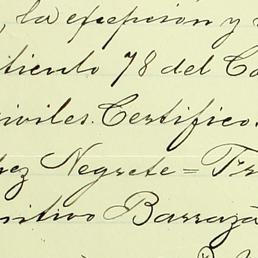 , la excepción y
tículo 78 del Co
iviles. Certifico.
pez Negrete = Fr
mitivo Barraza